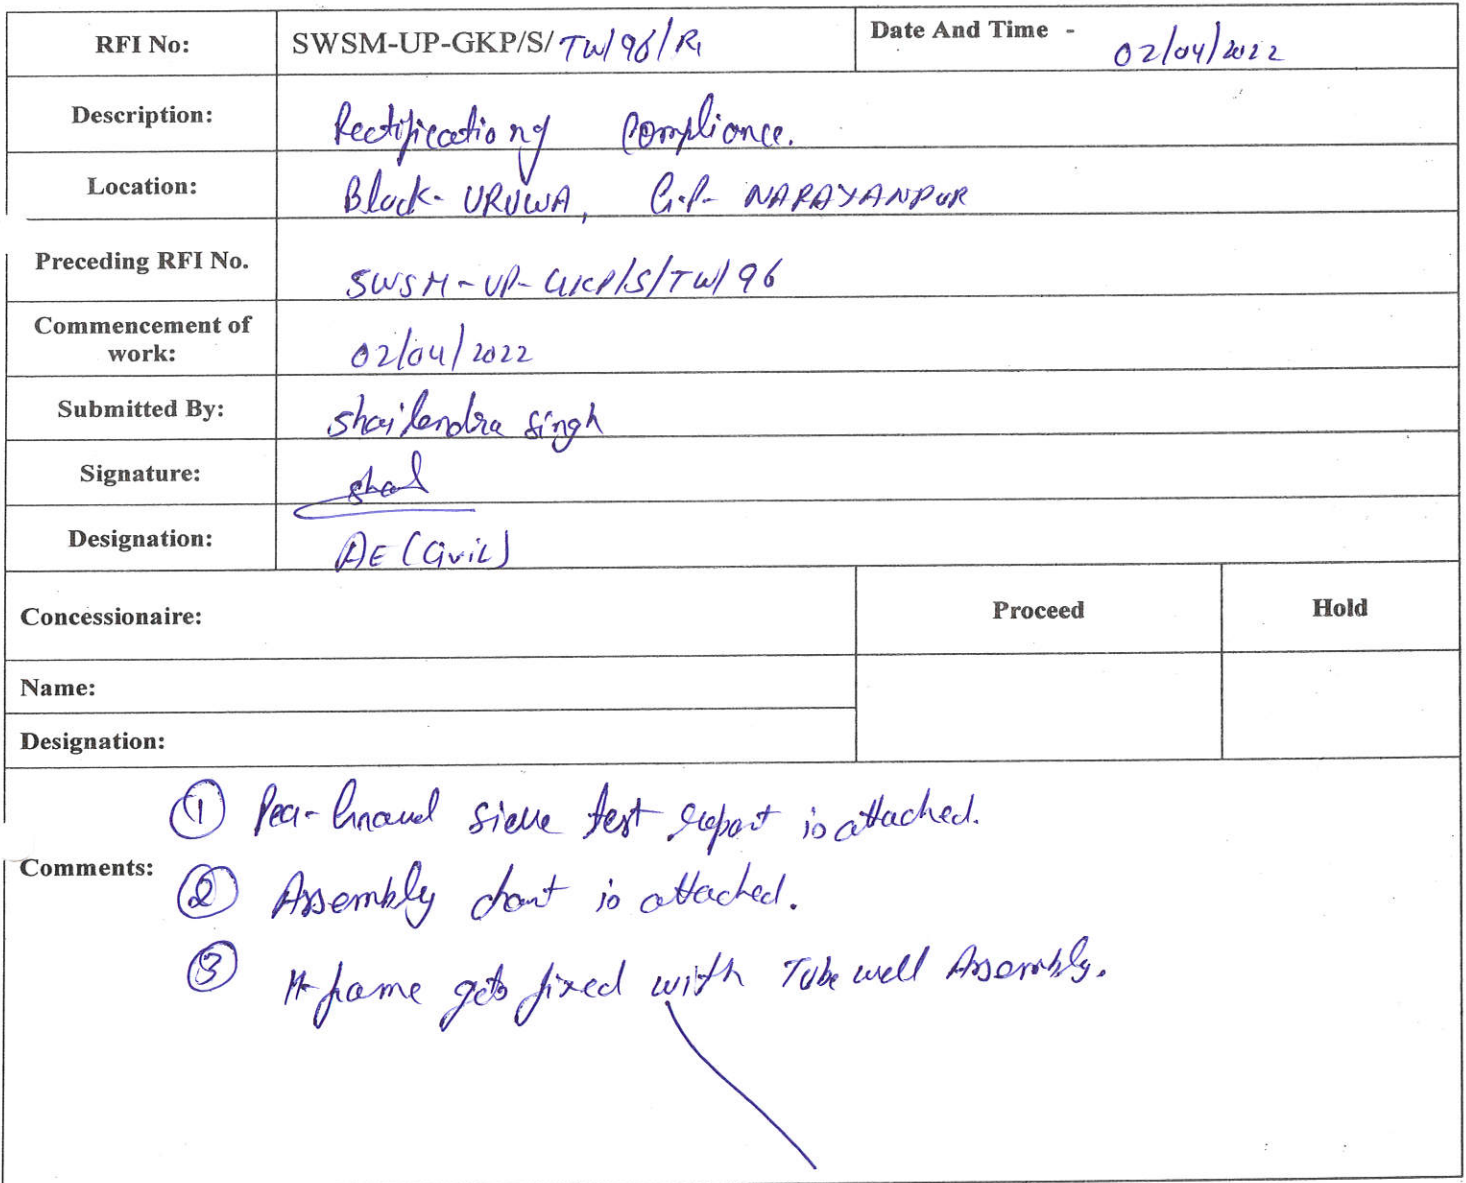 RFI No: SWSM-UP-GKP/S/TW/96/R1 Date And Time - 02/04/2022
Description: Rectification of Compliance.
Location: Block- URUWA, G.P- NARAYANPUR
Preceding RFI No. SWSM-UP-GKP/S/TW/96
Commencement of
work: 02/04/2022
Submitted By: Shailendra Singh
Signature: Shail
Designation: AE (Civil)
Concessionaire: Proceed Hold
Name:
Designation:
① Pea-Gravel Sieve test report is attached.
Comments:
② Assembly chart is attached.
③ H-frame gets fixed with Tube well Assembly.